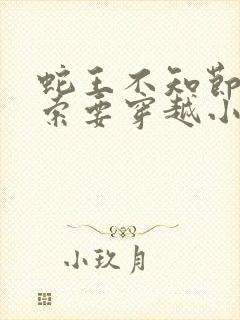 蛇王不知节
索要穿越小
小玖月